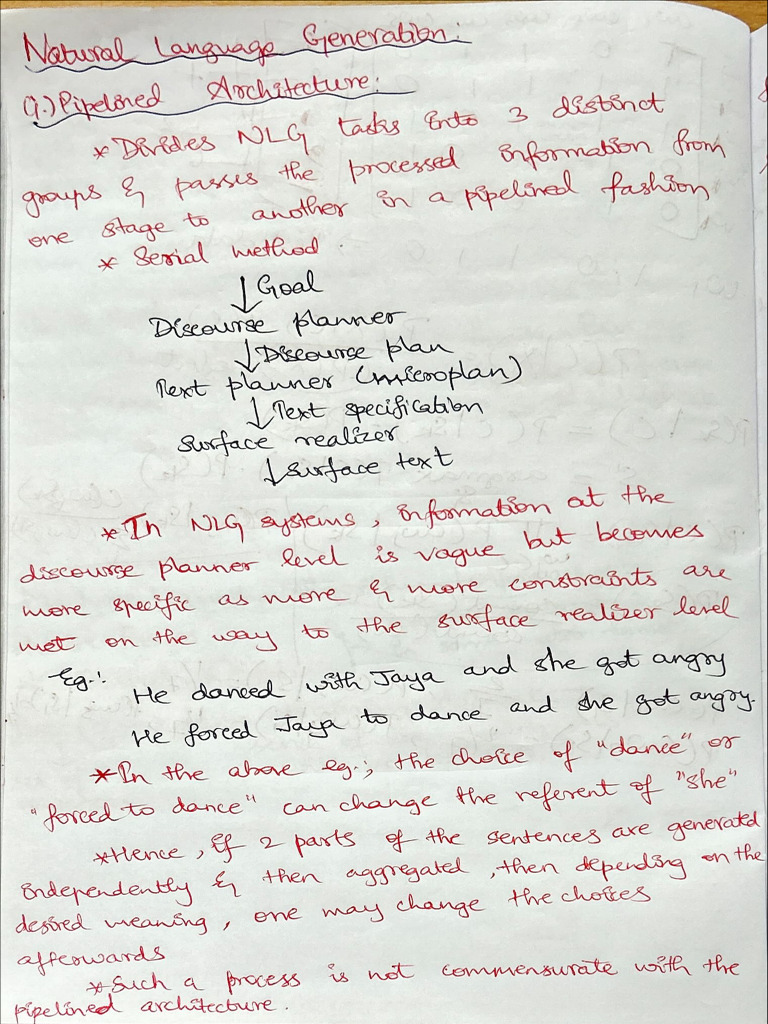 Natural Language Generation:
(i.) Pipelined Architecture:
* Divides NLG tasks into 3 distinct
groups & passes the processed information from
one stage to another in a pipelined fashion
* Serial method.
↓ Goal
Discourse planner
↓ Discourse plan
Text planner (microplan)
↓ Text specification
Surface realizer
↓ Surface text
* In NLG systems, information at the
discourse planner level is vague but becomes
more specific as more & more constraints are
met on the way to the surface realizer level
Eg.: He danced with Jaya and she got angry
He forced Jaya to dance and she got angry.
* In the above eg.; the choice of "dance" or
"forced to dance" can change the referent of "she"
* Hence, if 2 parts of the sentences are generated
independently & then aggregated, then depending on the
desired meaning, one may change the choices
afterwards
* Such a process is not commensurate with the
pipelined architecture.